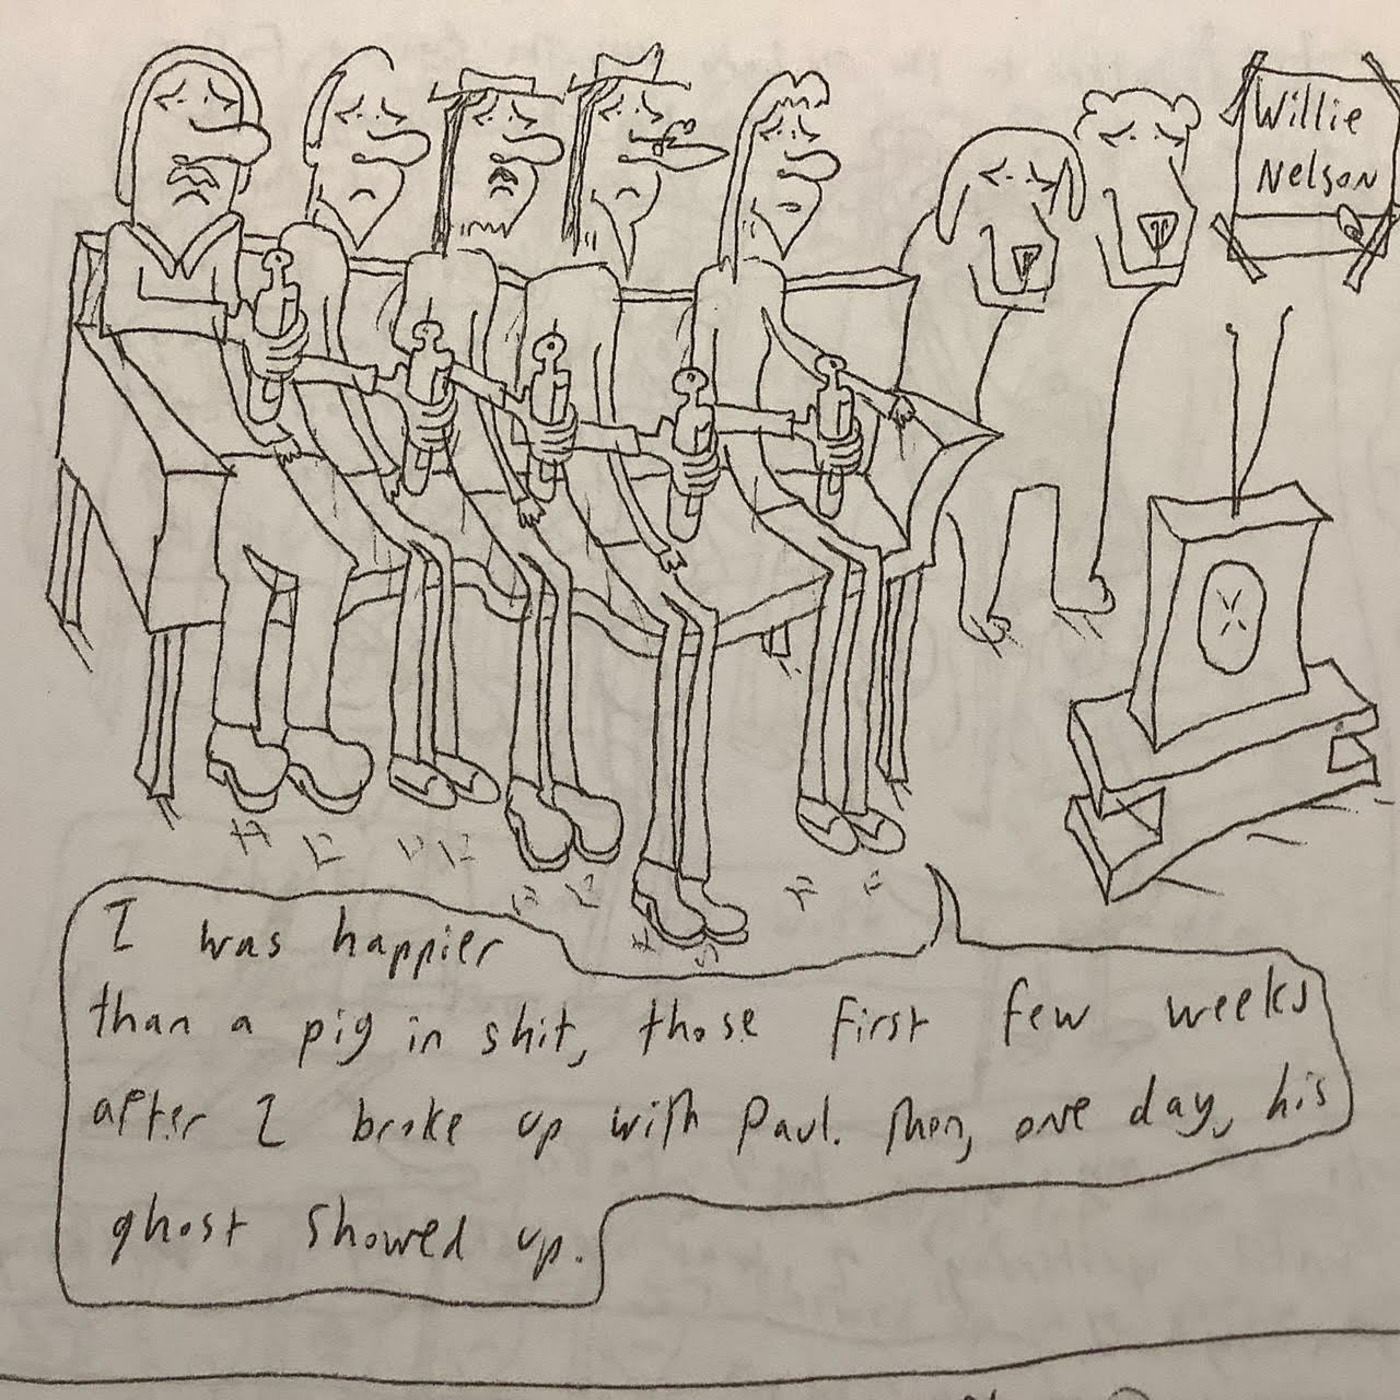 Willie
Nelson
I was happier
than a pig in shit, those first few weeks
after I broke up with Paul. Then, one day, his
ghost showed up.